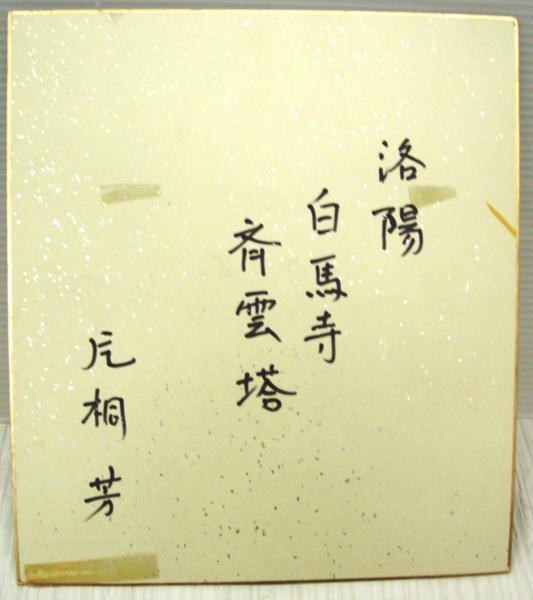 洛陽
白馬寺
斉雲塔
片桐芳